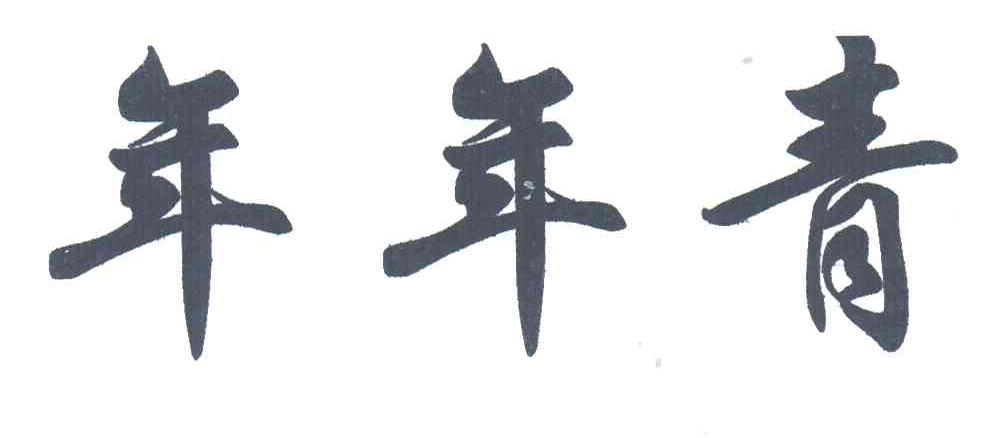 年年青